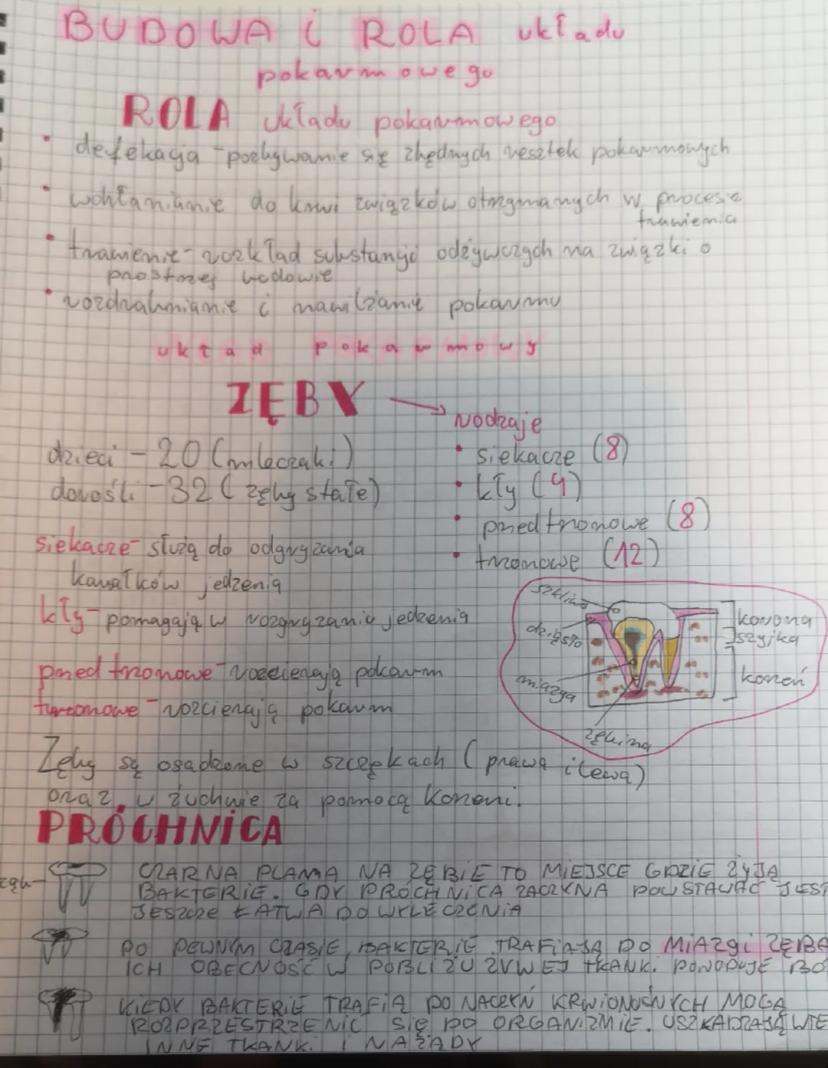 BUDOWA i ROLA układu
pokarmowego
ROLA układu pokarmowego
• defekacja - pozbywanie się zbędnych resztek pokarmowych
• wchłanianie do krwi związków otrzymanych w procesie
trawienia
• trawienie - rozkład substancji odżywczych na związki o
prostszej budowie
• rozdrabnianie i nawilżanie pokarmu
układ pokarmowy
ZĘBY → rodzaje
dzieci - 20 (mleczaki)
dorośli - 32 (zęby stałe)
• siekacze (8)
• kły (4)
• przedtrzonowe (8)
• trzonowe (12)
siekacze - służą do odgryzania
kawałków jedzenia
kły - pomagają w rozgryzaniu jedzenia
przedtrzonowe - rozcierają pokarm
trzonowe - rozcierają pokarm
szkliwo
dziąsło
miazga
zębina
korona
szyjka
korzeń
Zęby są osadzone w szczękach (prawa i lewa)
oraz w żuchwie za pomocą korzeni.
PRÓCHNICA
ząb
CZARNA PLAMA NA ZĘBIE TO MIEJSCE GDZIE ŻYJĄ
BAKTERIE. GDY PRÓCHNICA ZACZYNA POWSTAWAĆ JEST
JESZCZE ŁATWA DO WYLECZENIA
PO PEWNYM CZASIE, BAKTERIE TRAFIAJĄ DO MIAZGI ZĘBA
ICH OBECNOŚĆ W POBLIŻU ŻYWEJ TKANK. POWODUJE BÓ
KIEDY BAKTERIE TRAFIĄ DO NACZYŃ KRWIONOŚNYCH MOGĄ
ROZPRZESTRZENIĆ SIĘ PO ORGANIZMIE. USZKADZAJĄ WTE
INNE TKANKI I NARZĄDY